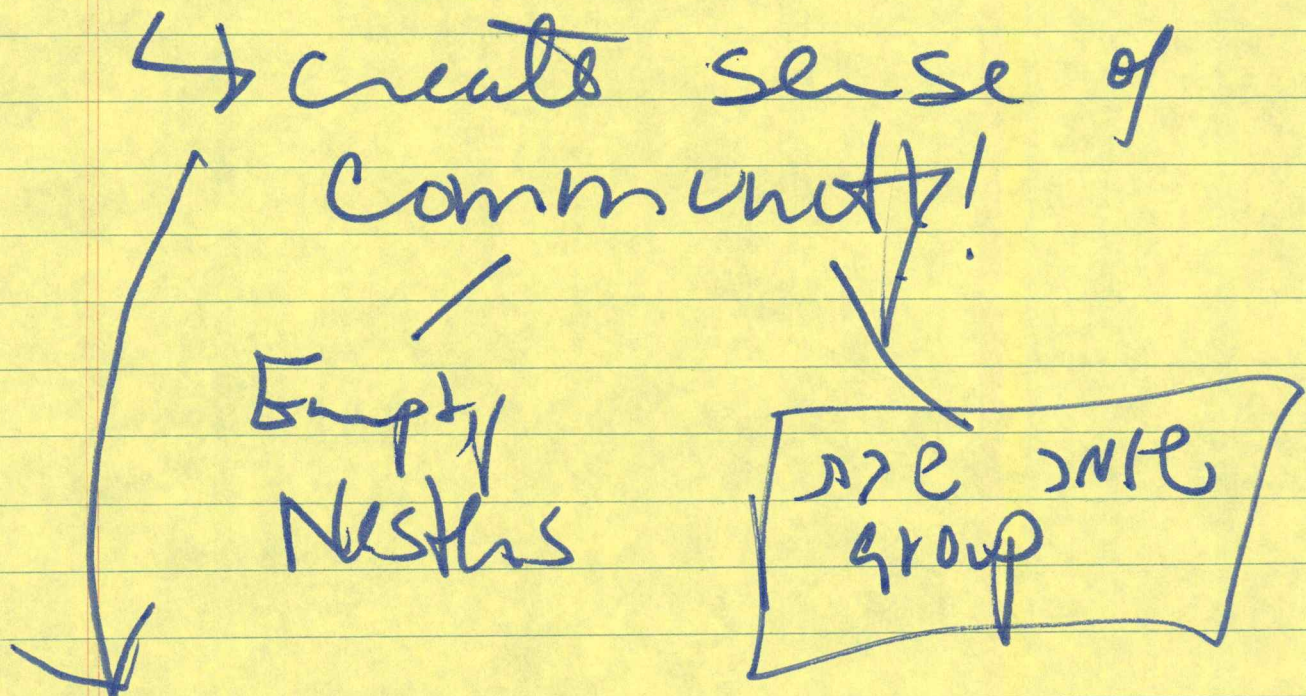 ↳ create sense of
community!
Empty
Nesters
שומר שבת
group